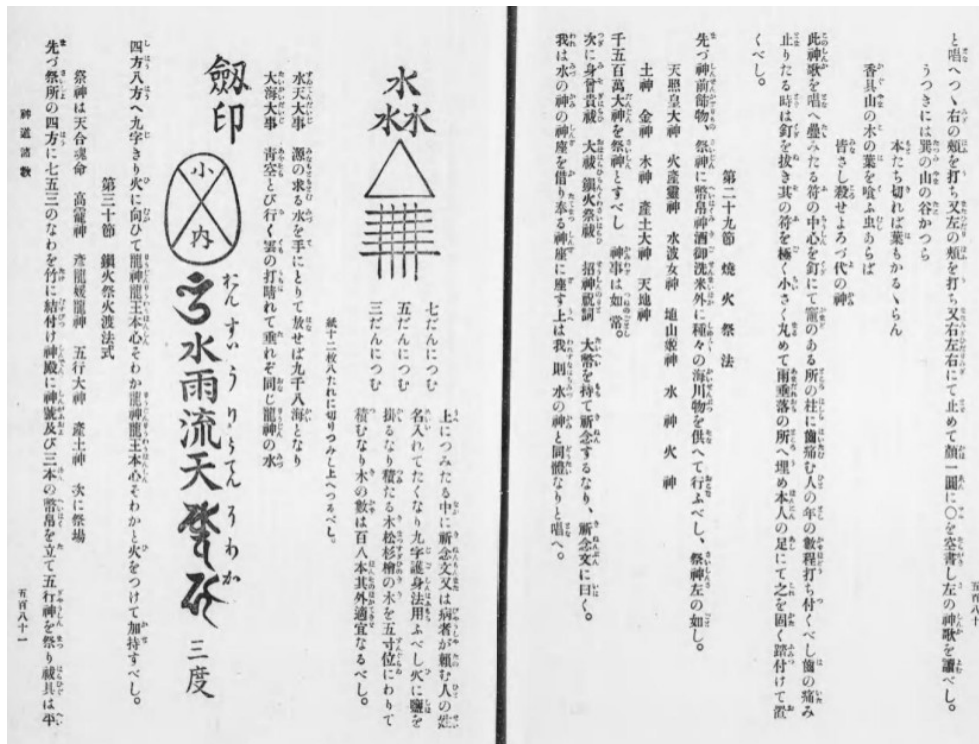 と唱へつゝ右の頰を打ち又左の頰を打ち又左右にて止めて顏一圓に〇を空書し左の神歌を讀べし。
うつきには巽の山の谷かつら
本たち切れば葉もかるゝらん
香具山の木の葉を喰ふ虫あらば
皆さし殺せよろづ代の神
此神歌を唱へ疊みたる符の中心を釘にて竈のある所の柱に齒痛む人の年の數程打ち付くべし齒の痛み
止りたる時は釘を拔き其の符を極く小さく丸めて雨垂落の所へ埋め本人の足にて之を固く踏付けて置
くべし。
第二十九節 燒火祭法
先づ神前餝物、祭神に幣帛神酒御洗米外に種々の海川物を供へて行ふべし、祭神左の如し。
天照皇大神 火產靈神 水波女神 埴山姬神 水神 火神
土神 金神 水神 產土大神 天地神
千五百萬大神を祭神とすべし 神事は如常。
次に身曾貴祓 大祓 鎭火祭祓 招神祝詞 大幣を持て祈念するなり、祈念文に曰く。
我は水の神の神座を借り奉る神座に座す上は我則水の神と同體なりと唱へ。
五百八十
水
水水
七だんにつむ
五だんにつむ
三だんにつむ
上につみたる中に祈念文又は病者が賴む人の姓
名入れてたくなり九字護身法用ふべし火に鹽を
掛るなり積たる木松杉檜の木を五寸位にわりて
積むなり木の數は百八本其外適宜なるべし。
紙十二枚八たれに切りつみし上へつるべし。
水天大事 源の求る水を手にとりて放せば九千八海となり
大海大事 靑空と行く雲の打晴れて垂れぞ同じ龍神の水
劔印
小
內
おんすゐうりうてんそわか
水雨流天
三度
四方八方へ九字きり火に向ひて龍神龍王本心そわか龍神龍王本心そわかと火をつけて加持すべし。
第三十節 鎭火祭火渡法式
祭神は天合魂命 高龗神 彥龍媛龍神 五行大神 產土神 次に祭場
先づ祭所の四方に七五三のなわを竹に結付け神殿に神號及び三本の幣帛を立て五行神を祭り祓具は平
神道諸敎
五百八十一